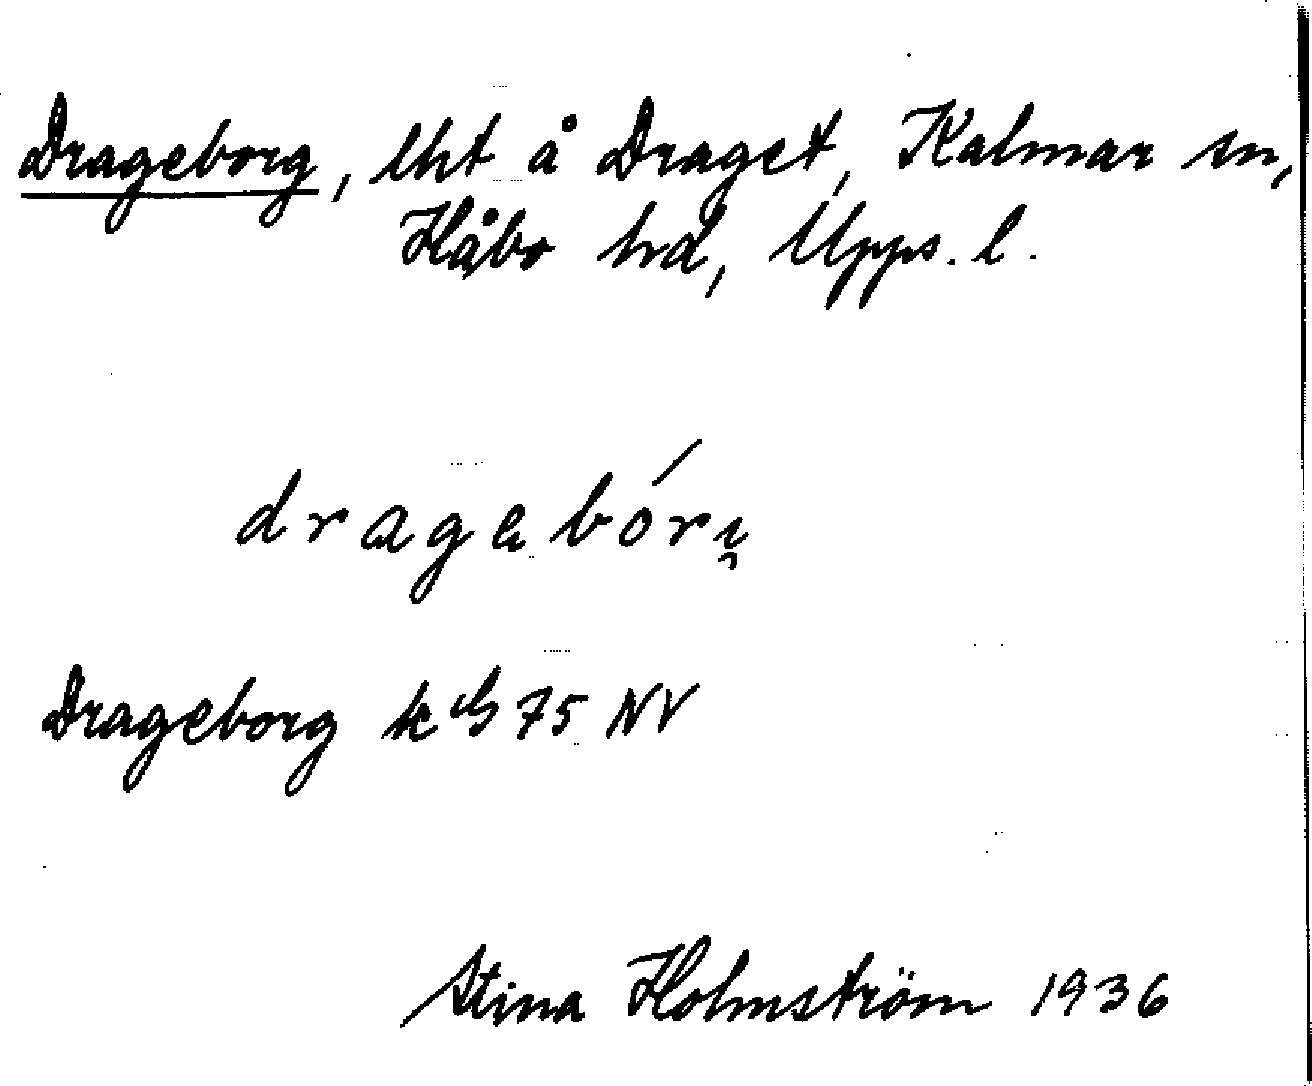 Drageborg, lht å Draget, Kalmar sn,
Håbo hd, Upps. l.
dragebórı̯
Drageborg k G 75 NV
Stina Holmström 1936